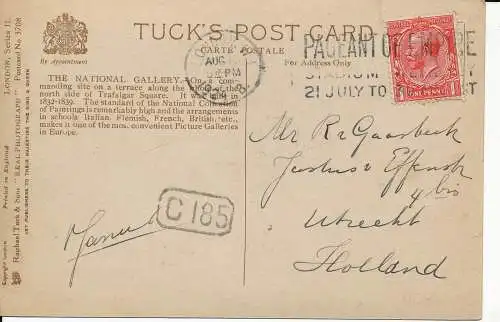 TUCK'S POST CARD
CARTE POSTALE
By Appointment
For Address Only
THE NATIONAL GALLERY. On a commanding site on a terrace along the whole of the
north side of Trafalgar Square. It was built in
1832-1839. The standard of the National Collection
of Paintings is remarkably high and the arrangement
in schools Italian, Flemish, French, British, etc.,
makes it one of the most convenient Picture Galleries
in Europe.
AUG
PAGEANT OF EMPIRE
STADIUM
21 JULY TO
ONE PENNY
Mr R. Gaasbeek
Justus v Effenstr
4 bis
Utrecht
Holland
C 185
LONDON, Series II.
"REAL PHOTOGRAPH" Postcard No. 3708
Raphael Tuck & Sons
ART PUBLISHERS TO THEIR MAJESTIES THE KING & QUEEN
Printed in England
Copyright